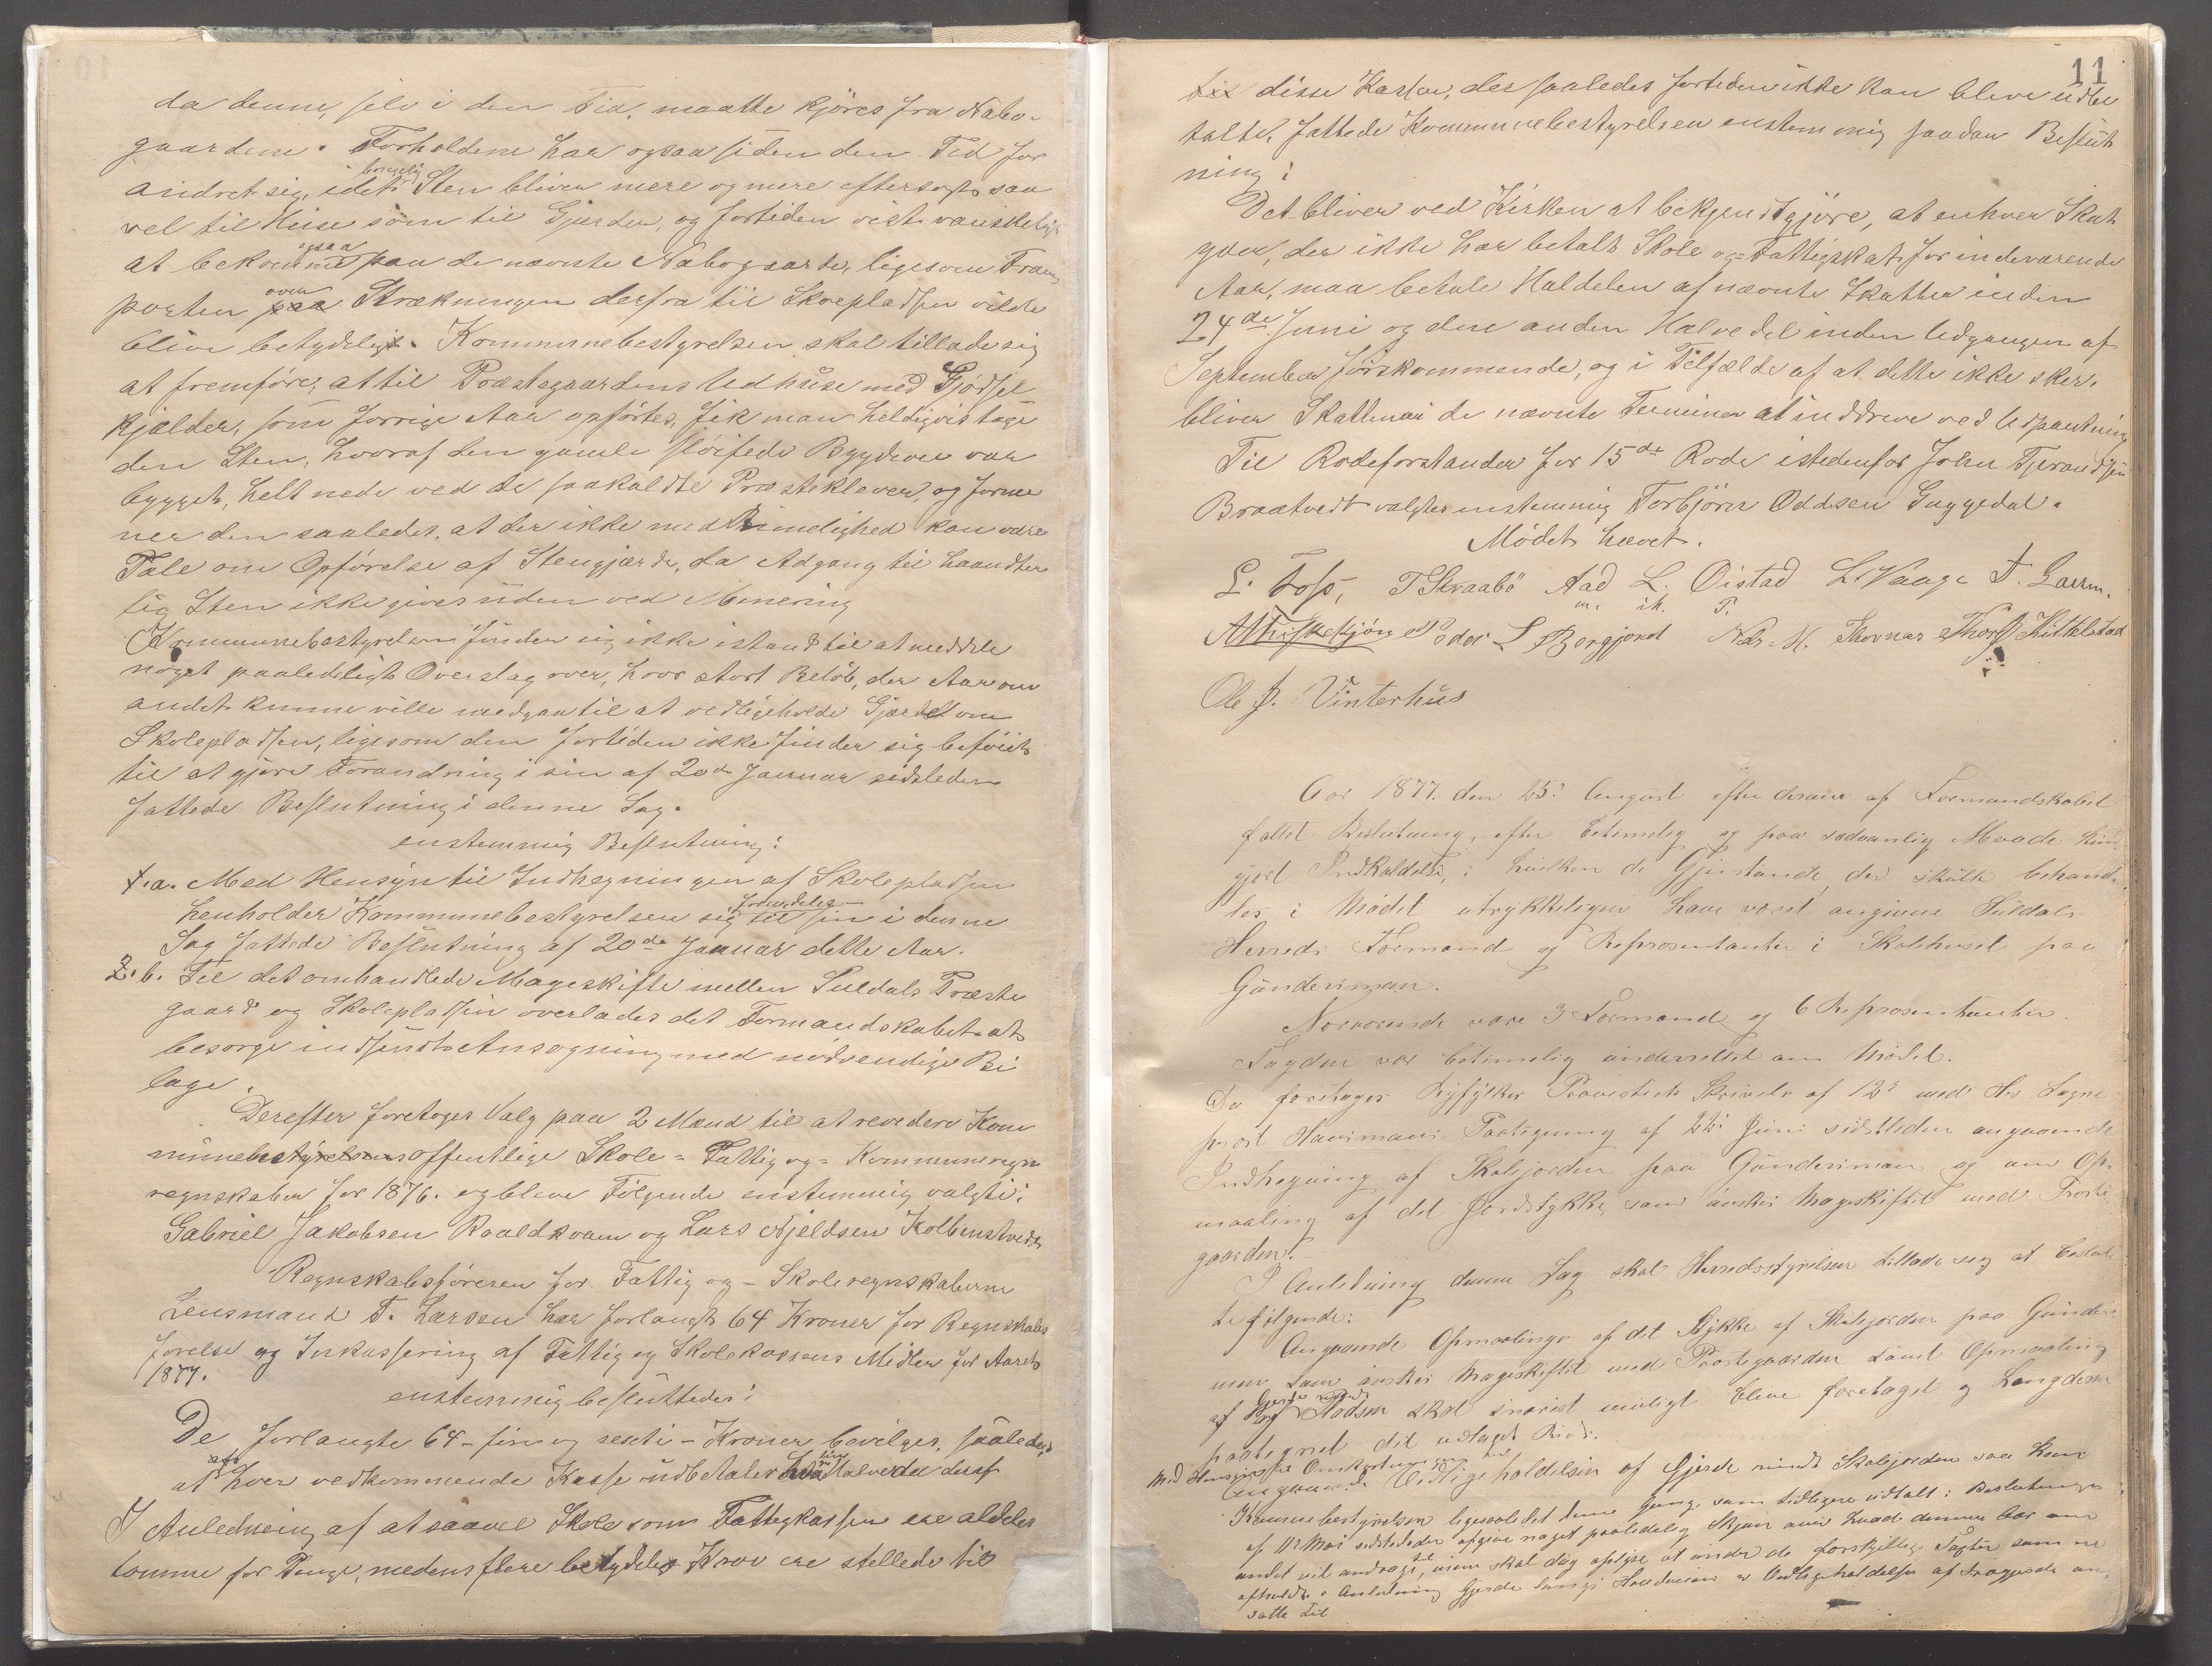 da denne, selv i den Tid, maatte kjöres fra Nabo-
gaardene. Forholdene har ogsaa siden den Tid for
andret sig, idet bequeelig Sten bliver mere og mere eftersögt saa
vel til Huse som til Gjerder, og fortiden vist vanskeligt
at bekomme ogsaa paa de nævnte Nabogaarde, ligesom Trans
porten paa over Strækningen derfra til Skolepladsen vilde
blive betydeligt. Kommunebestyrelsen skal tillade sig
at fremføre, at til Præstegaardens Udhuse med Gjödsel
kjælder, som forrige Aar opførtes, fik man heldigvis tage
den Sten, hvoraf den gamle slöifede Bygdevei var
bygget, helt nede ved de saakaldte Præsteklever, og forme
ner den saaledes, at der ikke med Rimelighed kan være
Tale om Opførelse af Stengjærde, da Adgang til haandter
lig Sten ikke gives uden ved Minering
Kommunebestyrelsen finder sig ikke istand til at meddele
noget paalideligt Overslag over, hvor stort Belöb, der Aar om
andet kunne ville medgaa til at vedligeholde Gjærdet om
Skolepladsen, ligesom den fortiden ikke finder sig beföiet
til at gjøre Forandring i sin af 20de Januar sidstleden
fattede Beslutning i denne Sag.
enstemmig Beslutning:
1.a. Med Hensyn til Indhegningen af Skolepladsen
henholder Kommunebestyrelsen sig fremdeles til sin i denne
Sag fattede Beslutning af 20de Januar dette Aar.
2.b. Til det omhandlede Mageskifte mellem Suldals Præste
gaard og Skolepladsen overlades det Formandskabet at
besorge indsendt Ansøgning med nödvendige Bi
lage.
Derefter foretoges Valg paa 2 Mænd til at revidere Kom
munebestyrelsens offentlige Skole- Fattig og- Kommuneregn
regnskaber for 1876. og bleve Følgende enstemmig valgte:
Gabriel Jakobsen Roaldkvam og Lars Kjeldsen Kolbenstvedt
Regnskabsføreren for Fattig og- Skoleregnskaberne
Lensmand T. Larsen har forlangt 64 Kroner for Regnskabs
førelse og Inkassering af Fattig og Skolekassens Midler for Aaret
1877.
enstemmig besluttedes:
De forlangte 64- fire og sexti- Kroner bevilges, saaledes
at hver vedkommende Kasse udbetaler Halvdelen deraf
I Anledning af at saavel Skole som Fattigkassen ere aldeles
tomme for Penge, medens flere betydelige Krav ere stellede til
11
til disse Kasser, der saaledes fortiden ikke kan blive udbe
talte, fattede Kommunebestyrelsen enstemmig saadan Beslut
ning:
Det bliver ved Kirken at bekjendtgjöre, at enhver Skat
yder, der ikke har betalt Skole og= Fattigskat for indeværende
Aar, maa betale Haldelen af nævnte Skatter inden
24de Juni og den anden Halvedel inden Udgangen af
September førstkommende, og i Tilfælde af at dette ikke sker.
bliver Skatten i de nævnte Terminer at inddrive ved Udpantning
Til Rodeforstander for 15de Rode istedenfor John Tjerandsen
Braatvedt valgtes enstemmig Torbjörn Oddsen Guggedal.
Mödet hævet.
L. Foss, T Straabö Aad L. Öistad L. Vaage T. Larsen.
m. ih. P.
Peder L Bergjord Nils M. Hovnas Thor Kittelstad
Ole J. Vinterhus
Aar 1877. den 25de August efter derom af Formandskabet
fattet Beslutning, efter betimelig og paa sedvanlig Maade kund
gjort Indkaldelse, i hvilken de Gjenstande, der skulle behand-
les i Mödet utrykkeligen have været angivne Suldals
Herreds Formænd og Repræsentanter i Skolehuset paa
Gunderimoen.
Nærværende vare 3 Formænd og 6 Repræsentanter.
Fogden var betimelig underrettet om Mødet.
Da foretages Ryfylkes Provsties Skrivelse af 12te med Hr Sogne
prest Paategning af 22de Juni sidstleden angaaende
Indhegning af Skolejorden paa Gunderimoen og om Op-
maaling af det Jordstykke, som ønskes Mageskiftet med Præste
gaarden.
I Anledning denne Sag skal Herredsstyrelsen tillade sig at beslut
te følgende:
Angaaende Opmaalinger af det Stykke af Skolejorden paa Gunderi
moen som ønskes Mageskiftet med Præstegaarden samt Opmaaling
af Pladsen skal snarest muligt blive foretaget og Længderne
paategnet det udlagte Rids.
Med Hensyn til Omkostningerne ved
Vedligeholdelsen af Gjerde rundt Skolejorden saa kan
Kommunebestyrelsen ligesaalidt denne Gang, som tidligere udtalt i Beslutninger
af Mai sidstleden afgive noget paalidelig Skjøn over hvad denne Aar om
andet vil andrage til, men skal dog oplyse at under de forskjellige Poster som ere
afholdt i Anledning Gjerde langs Hovedveien og Vedligeholdelse af Skiggerde an-
satte til